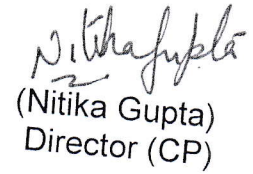 Nitika Gupta
(Nitika Gupta)
Director (CP)